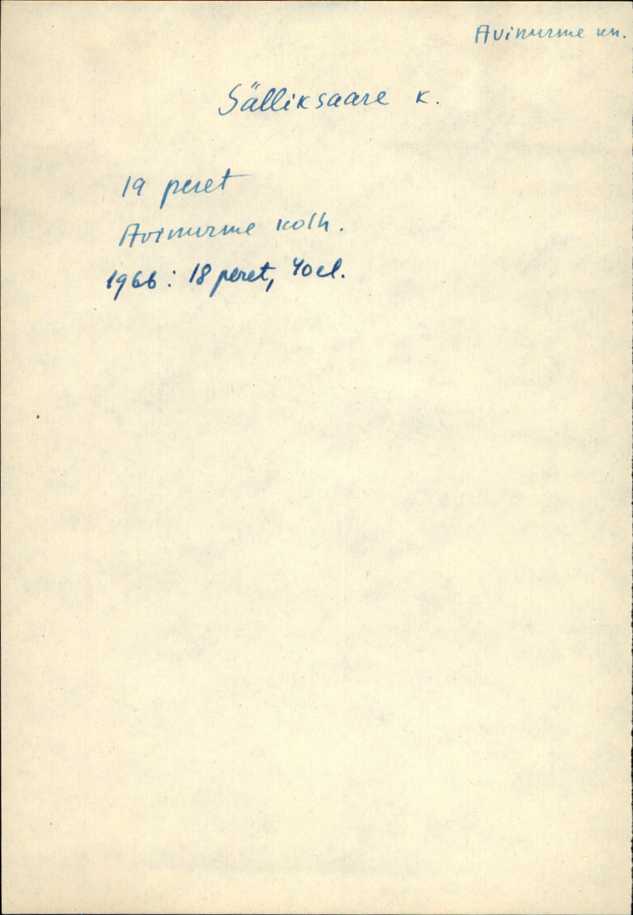 Avinurme kn.
Sälliksaare k.
19 peret
Avinurme kolh.
1966: 18 peret, 40 el.